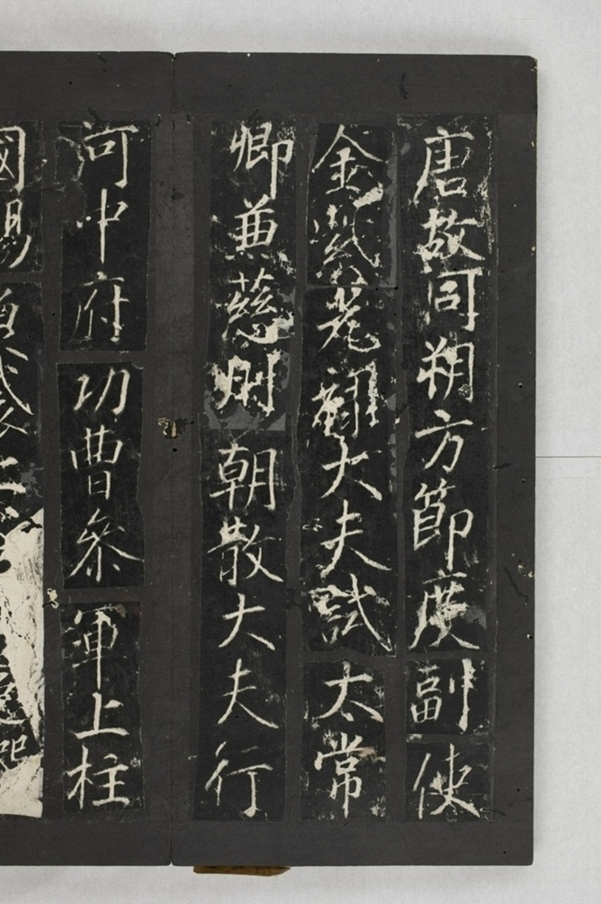 唐故同朔方節度副使
金紫光祿大夫試太常
卿兼慈朝散大夫行
河中府功曹參軍上柱
國賜